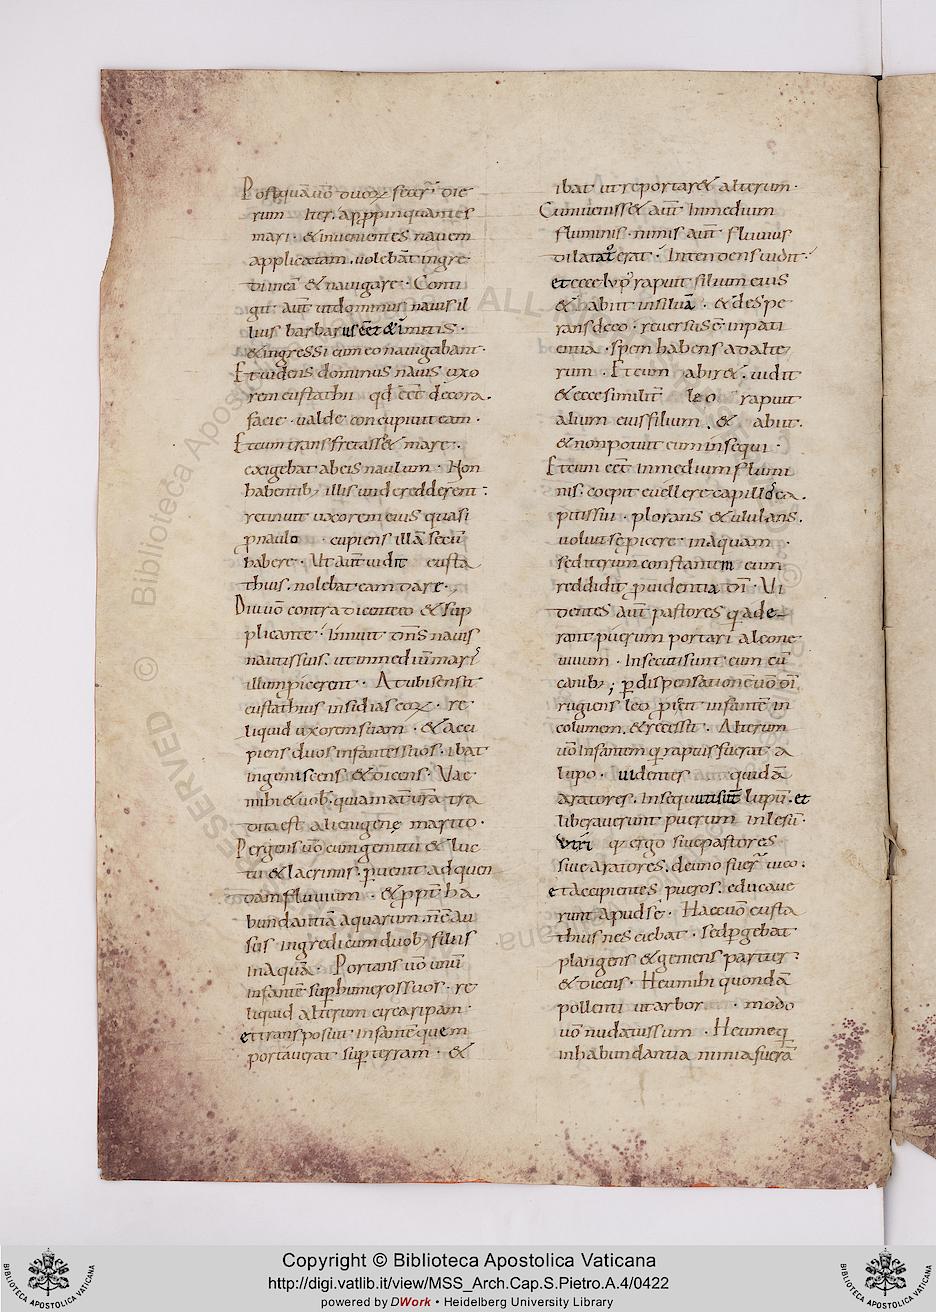 Postquā uō duoꝝ fecer̄ die
rum Iter. appinquantes
mari · & inuenientes nauem
applicatam . uolebāt ingre
di in eā & nauigare · Conti
git aut̄ ut dominus nauis il
lius barbarus eēt & īmitis ·
& ingressi cum eo nauigabant ·
Et uidens dominus nauis uxo
rem eustathii qd̄ eēt decora .
facie · ualde concupiuit eam ·
Et cum transfretass& mare ·
exigebat ab eis naulum · Non
habentib; illis unde redderent ·
retinuit uxorem eius quasi
ꝓ naulo · cupiens illā secū
habere · Ut aut̄ uidit eusta
thius . nolebat eam dare ·
Diu uō contradicente & sup
plicante · Innuit dn̄s nauis
nautis suis . ut in mediū mari
illum ꝓicerent · At ubi sensit
eustathius insidias eoꝝ · re
liquid uxorem suam · & acci
piens duos infantes suos · ibat
ingemiscens & dicens · Vae
mihi & uob̄ · quia mat̄ ur̄a tra
dita est alienigenę marito ·
Pergens uō cum gemitu & luc
tu & lacrimis · ꝑuenit ad quen
dam fluuium · & ꝓpt̄ ha
bundantiā aquarum · n̄ eāu
sus ingredi cum duob; filiis
in aquā · Portans uō unū
infantē sup humeros suos · re
liquid alterum circa ripam ·
et transposuit infantē quem
portauerat sup terram · &
ibat ut reportar& alterum ·
Cum ueniss& aut̄ In medium
fluminis · nimis aut̄ fluuius
dilatat' erat · Intendens uidit ·
et ecce lup' rapuit filium eius
& abiit in siluā · & despe
rans de eo · reuersus ē in pati
entia · spem habens ad alte
rum · Et cum abir& . uidit
& ecce similit̄ leo rapuit
alium eius filium . & abiit .
& non potuit eum insequi ·
Et cum eēt In medium flumi
nis . coepit euellere capillos ca
pitis sui · plorans & ululans .
uoluit se ꝓicere in aquam ·
sed iterum constantem eum
reddidit ꝓuidentia dī · Vi
dentes aut̄ pastores q ade
rant puerum portari a leone
uiuum · Insecuti sunt eum cū
canib; ; ꝑ dispensationē uō dī
rugiens leo ꝓiecit infantē in
columem . & recessit · Alterum
uō Infantem q raptus fuerat a
lupo · uidentes quidā
aratores . Insecuti sūt lupū . et
liberauerunt puerum inlesū ·
Vtri q; ergo siue pastores
siue aratores . de uno fuer̄ uico ·
et accipientes pueros . educaue
runt apud se · Haec uō eusta
thius nesciebat · sed ꝑgebat
plangens & gemens pariter
& dicens · Heu mihi quondā
pollenti ut arbor · modo
uō nudatus sum · Heu me q
in habundantia nimia fuerā
Copyright © Biblioteca Apostolica Vaticana
http://digi.vatlib.it/view/MSS_Arch.Cap.S.Pietro.A.4/0422
powered by DWork • Heidelberg University Library